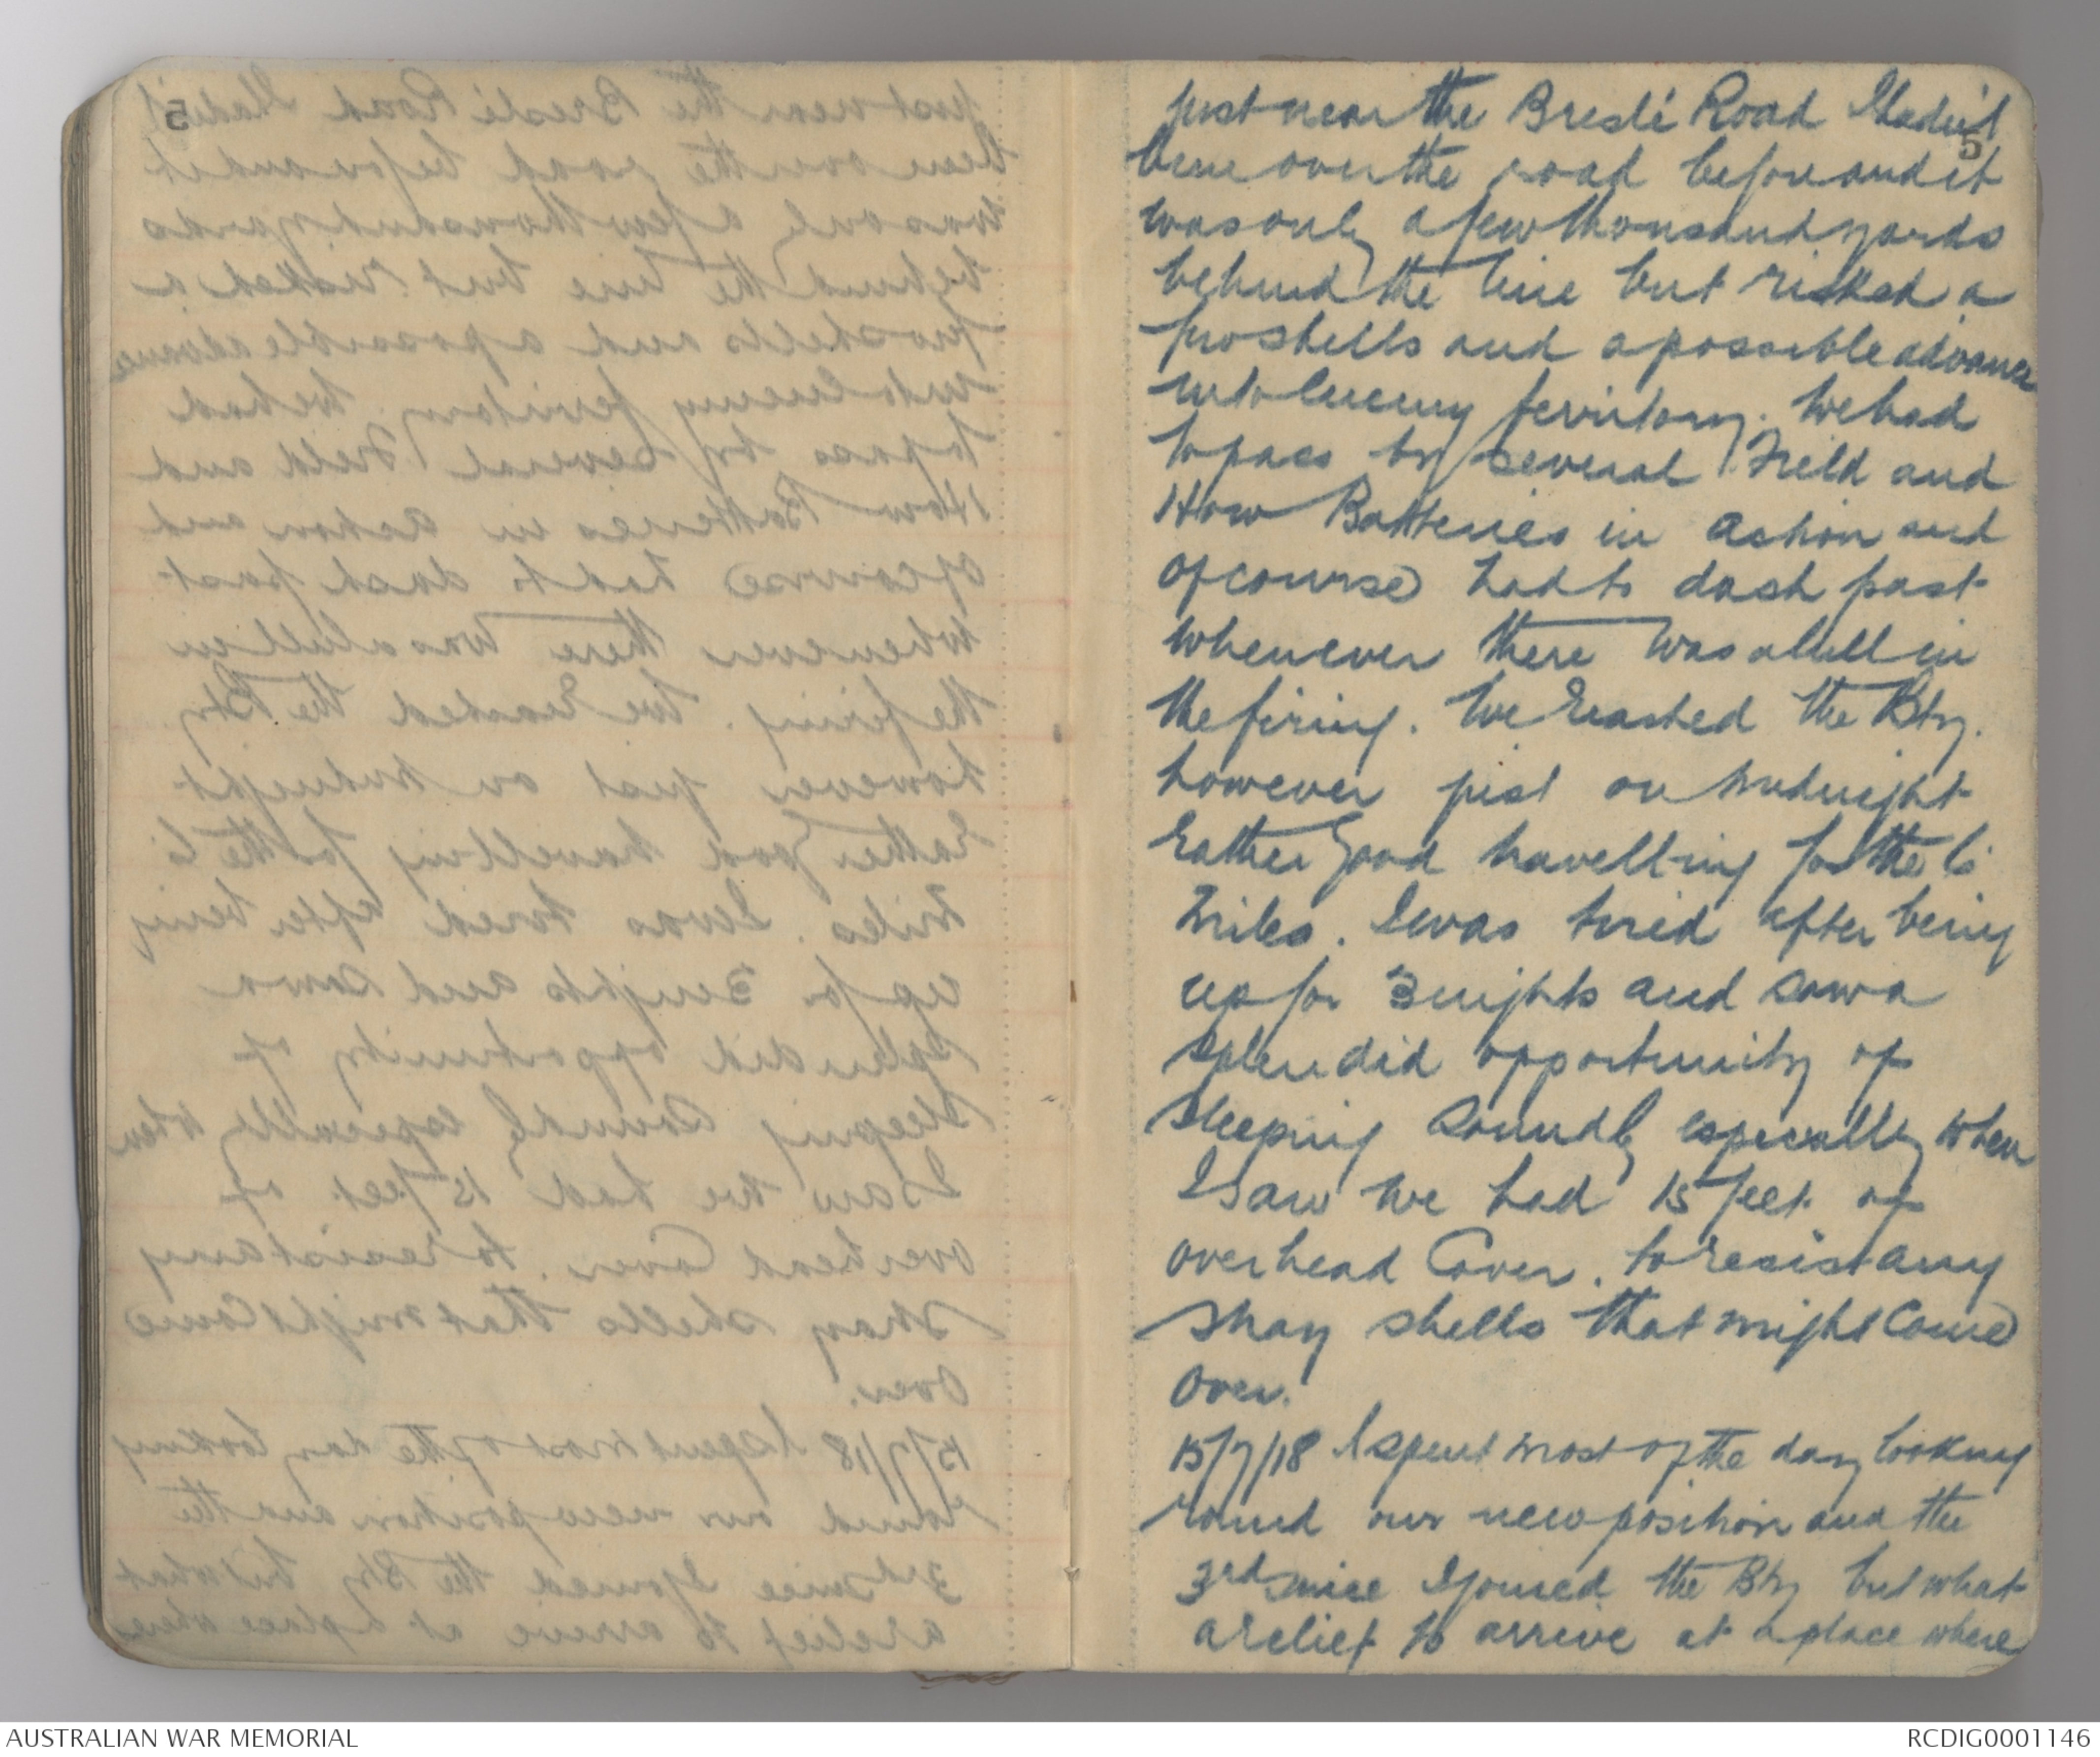 just near the Bresle Road I hadn't
5
been over the road before and it
was only a few thousand yards
behind the line but risked a
few shells and a possible advance
into enemy territory. We had
to pass by several Field and
How Batteries in action and
of course had to dash past
whenever there was a lull in
the firing. We reached the Bty.
however just on midnight
rather good travelling for the 6
miles. I was tired after being
up for 3 nights and saw a
splendid opportunity of
sleeping soundly especially when
I saw we had 15 feet of
overhead Cover. to resist any
stray shells that might come
over.
15/7/18 I spent most of the day looking
round our new position and the
3rd since I joined the Bty but what
a relief to arrive at a place where
AUSTRALIAN WAR MEMORIAL
RCDIG0001146